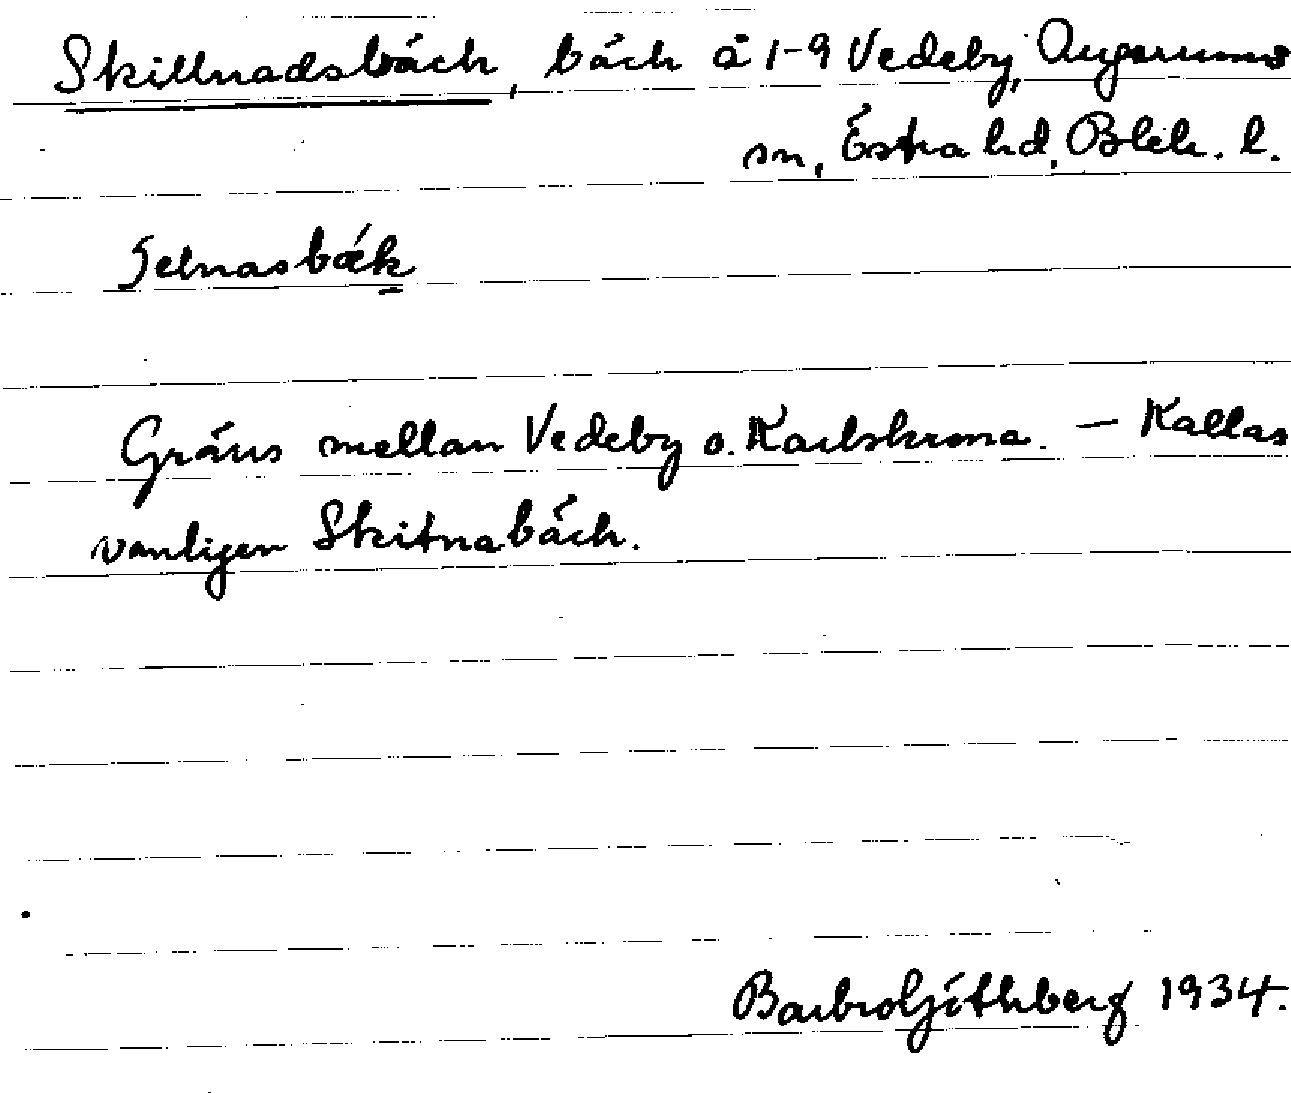 Skillnadsbäck, bäck å 1-9 Vedeby, Augerums
sn, Östra hd, Blek. l.
ʃelnasbæk
Gräns mellan Vedeby o. Karlskrona. — Kallas
vanligen Skitnabäck.
Barbro Göthberg 1934.